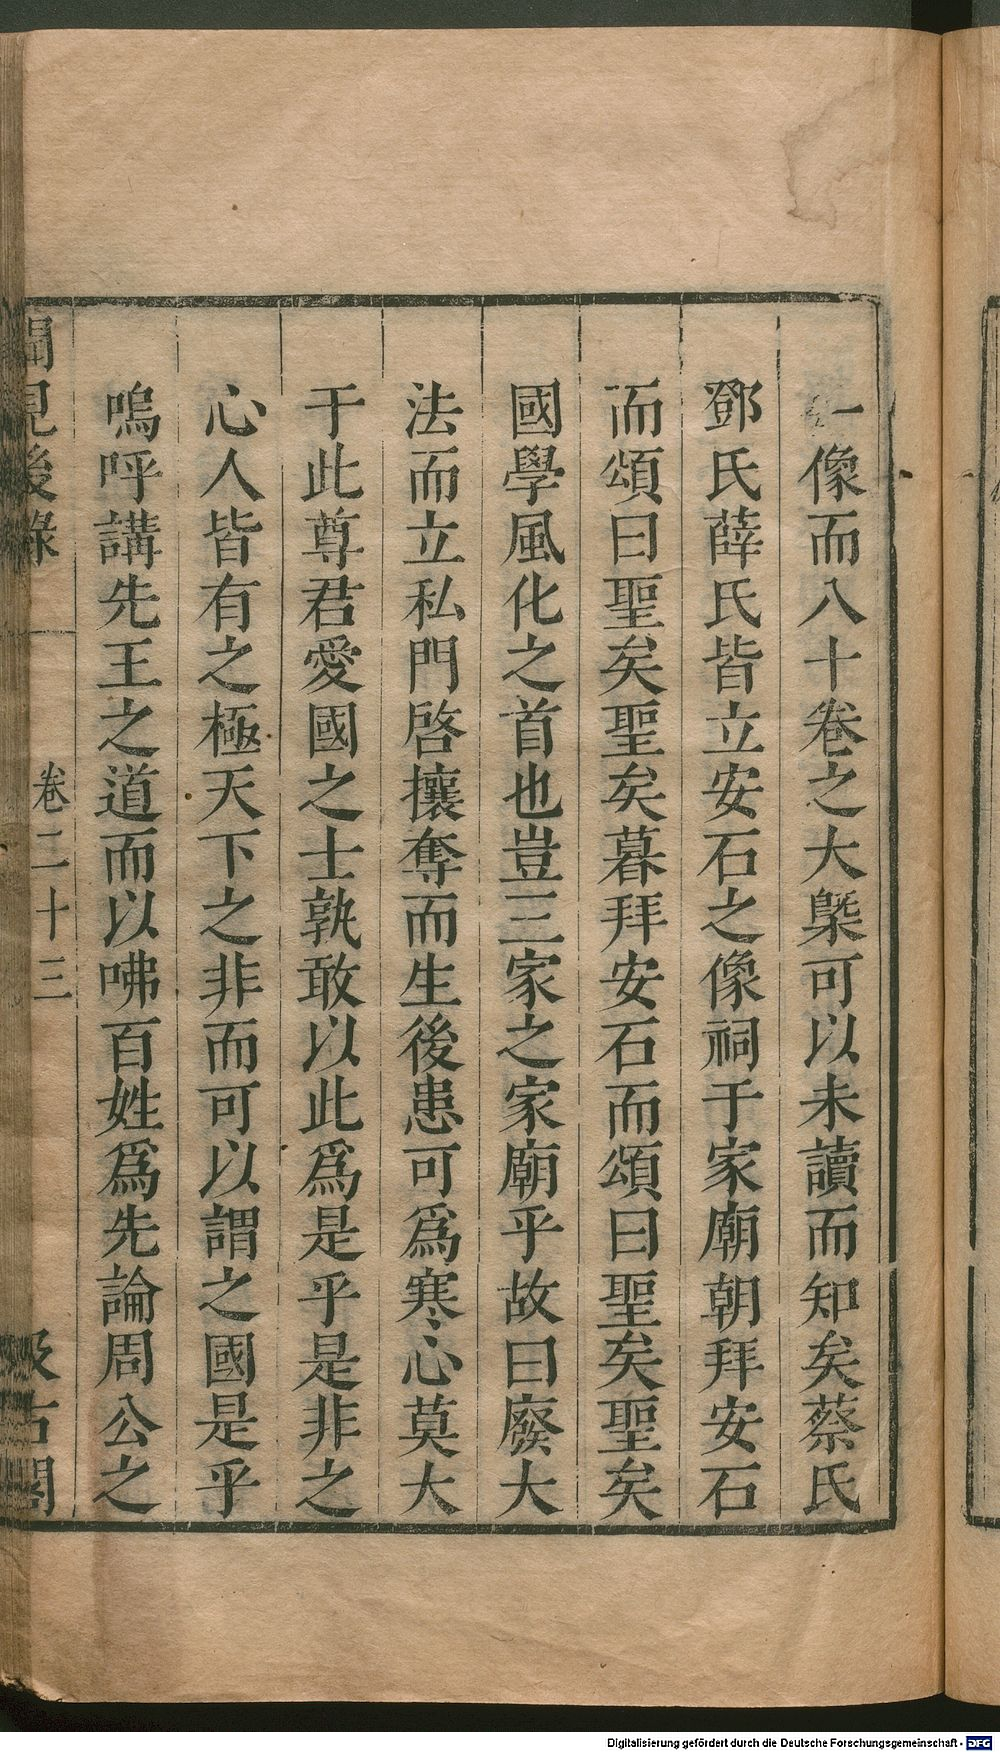 一像而八十卷之大槩可以未讀而知矣蔡氏
鄧氏薛氏皆立安石之像祠于家廟朝拜安石
而頌曰聖矣聖矣暮拜安石而頌曰聖矣聖矣
國學風化之首也豈三家之家廟乎故曰廢大
法而立私門啓攘奪而生後患可爲寒心莫大
于此尊君愛國之士孰敢以此爲是乎是非之
心人皆有之極天下之非而可以謂之國是乎
嗚呼講先王之道而以咈百姓爲先論周公之
聞見後錄 卷二十三 汲古閣
Digitalisierung gefördert durch die Deutsche Forschungsgemeinschaft - DFG